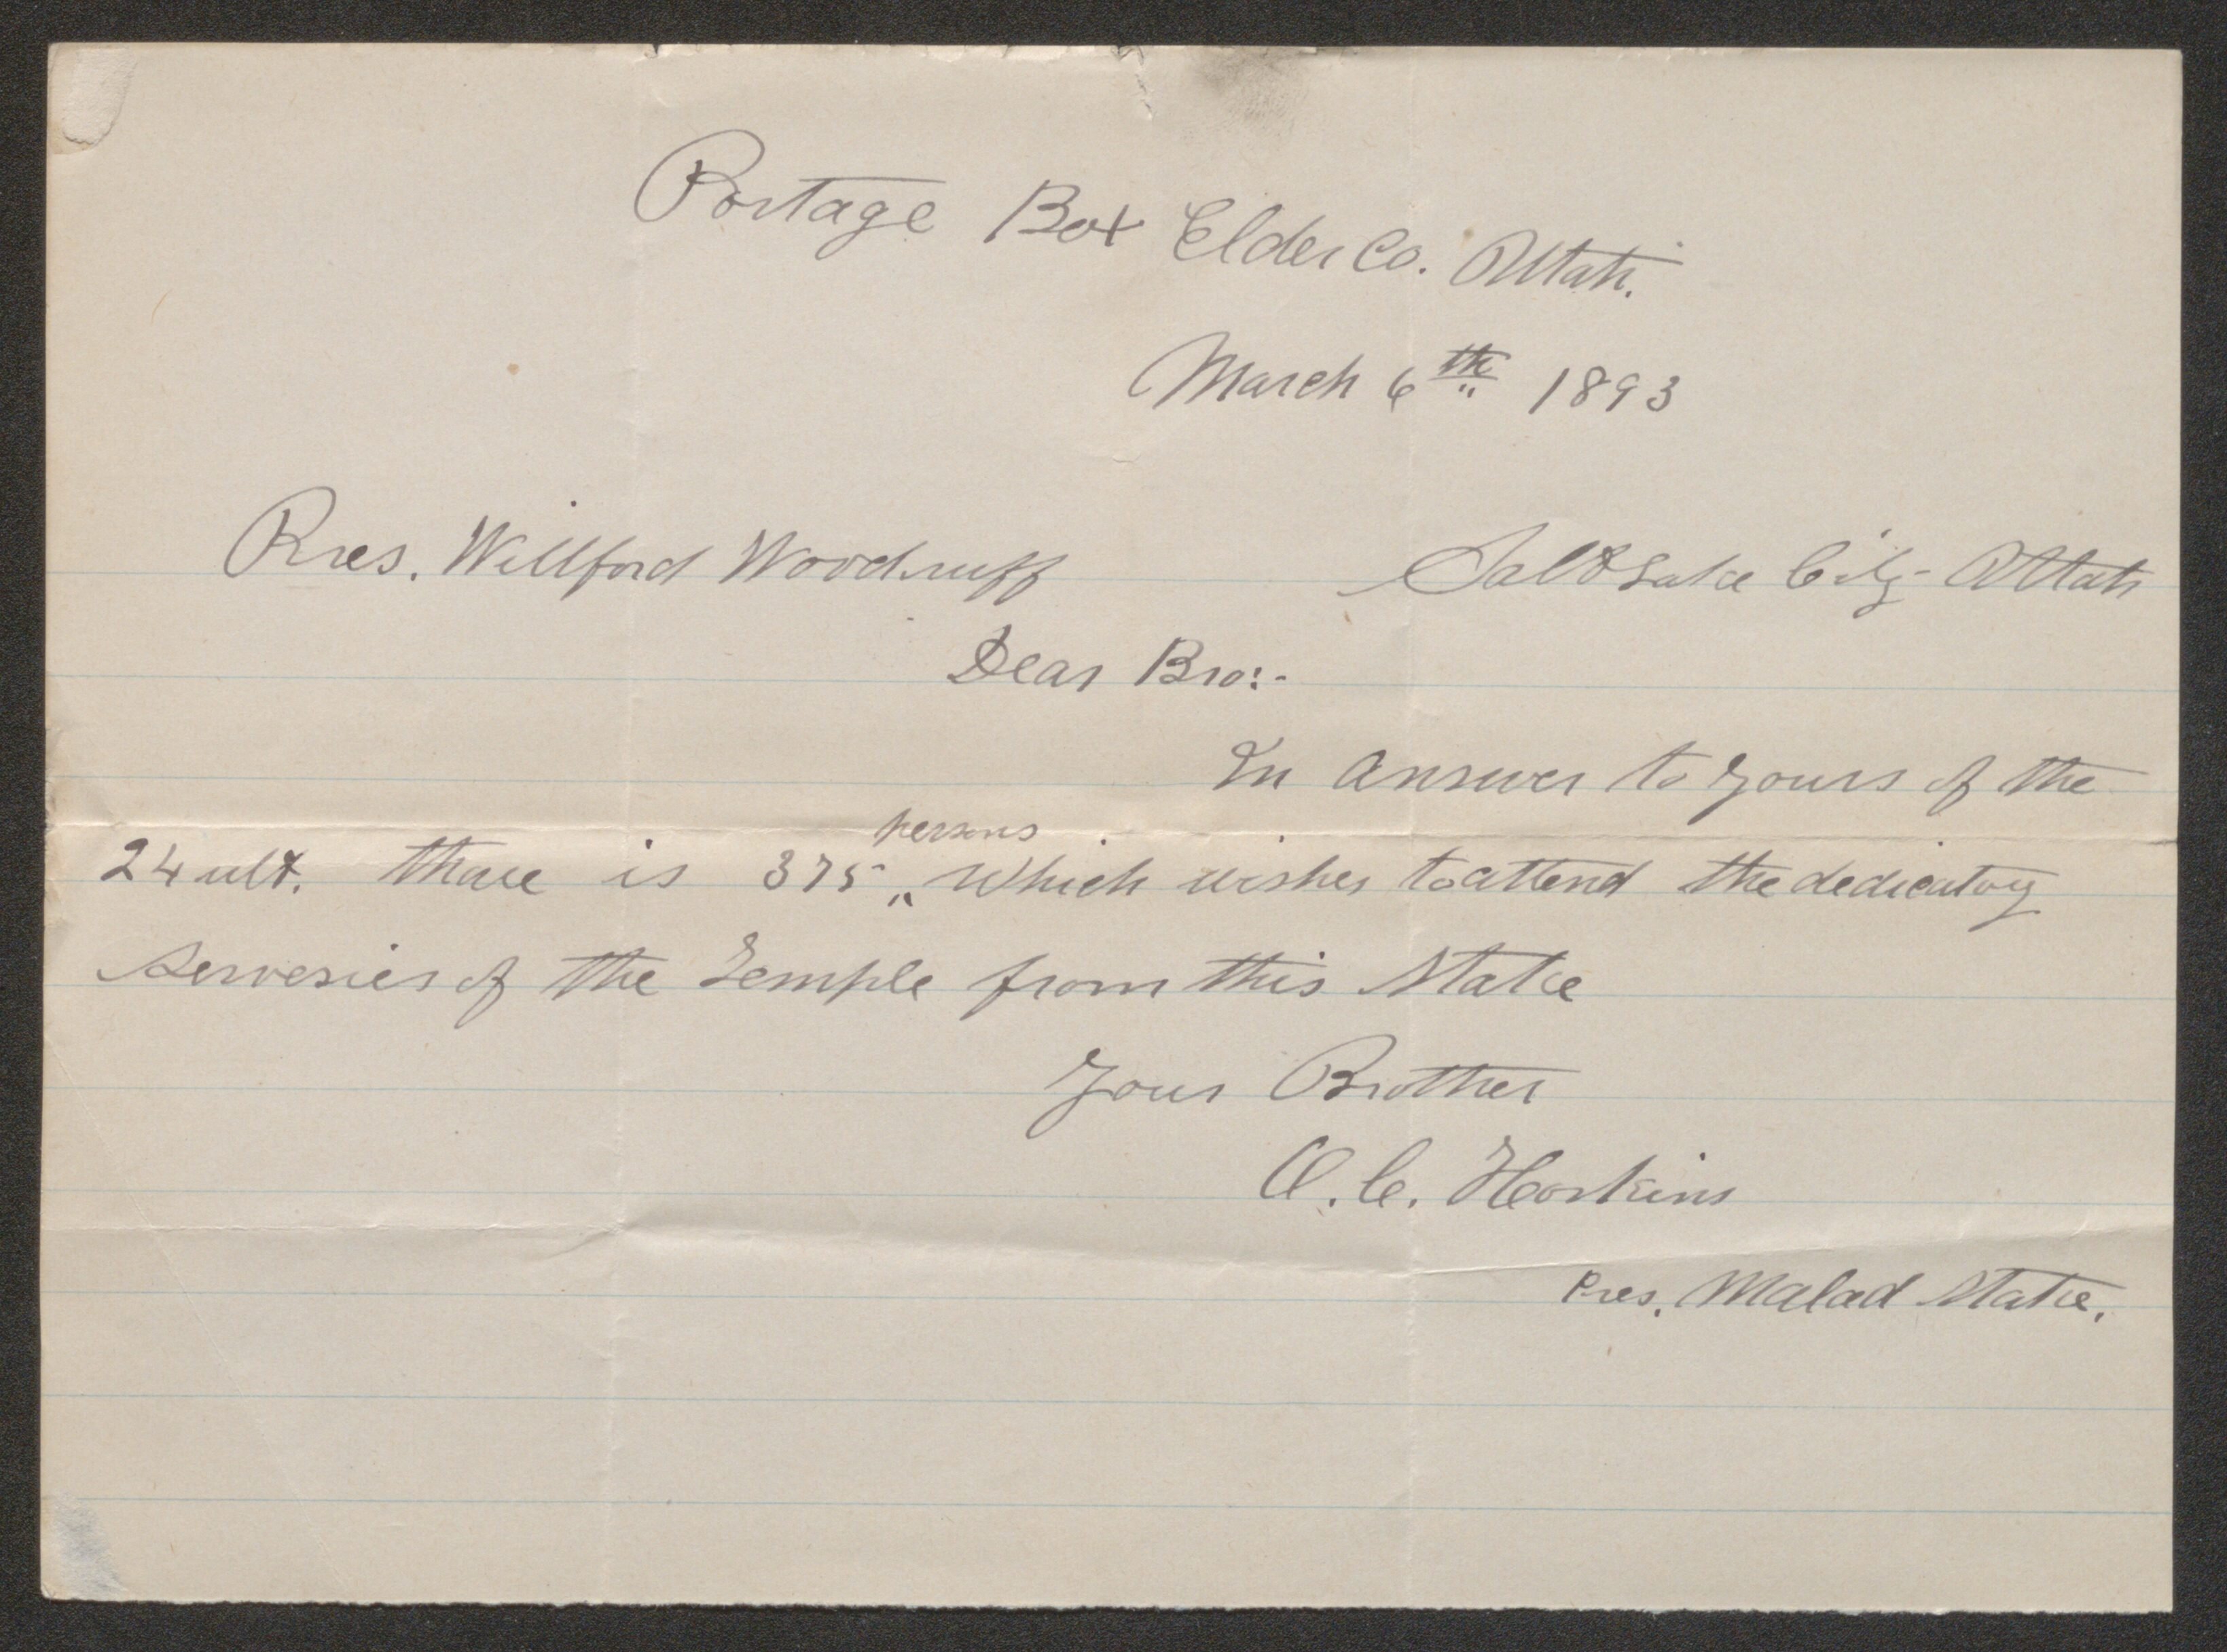 Portage Box Elder Co. Utah.
March 6th 1893
Pres. Willford Woodruff Salt Lake City - Utah
Dear Bro:-
In answer to yours of the
persons
24 ult. thare is 375 " which wishes to attend the dedicatory
servesies of the Temple from this Stake
Your Brother
O. C. Hoskins
Pres. Malad Stake.